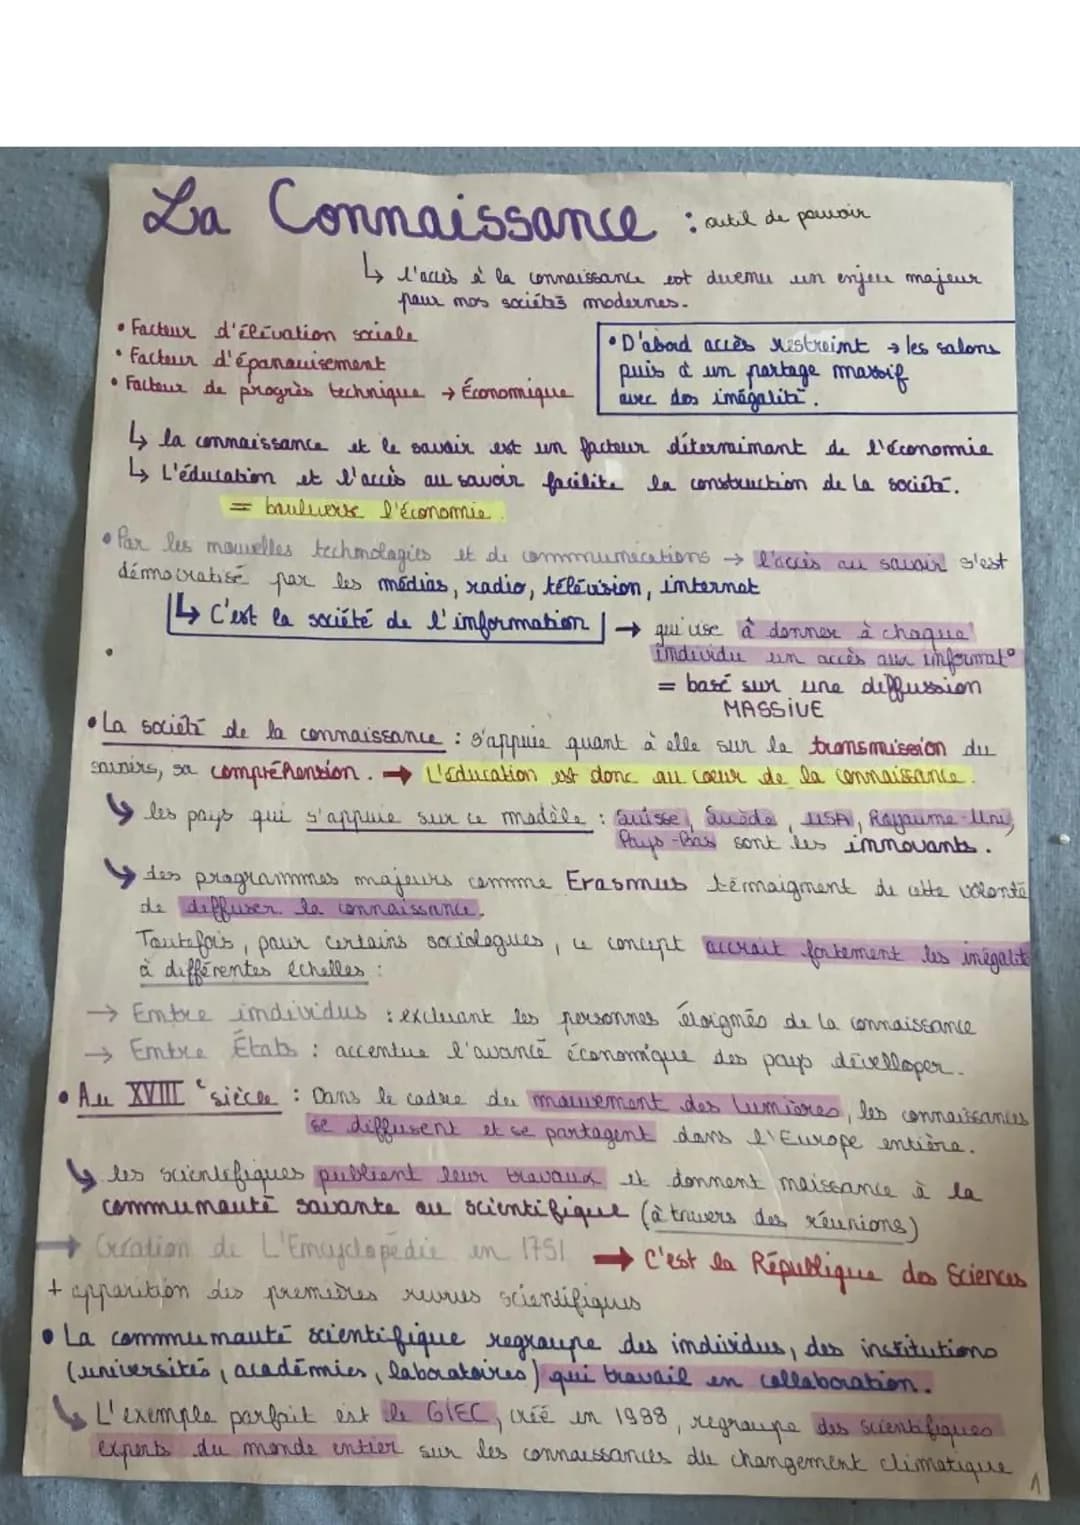 La Connaissance : outil de pouvoir
↳ l'accès à la connaissance est devenu un enjeu majeur
pour nos sociétés modernes.
• Facteur d'élévation sociale
• Facteur d'épanouissement
• Facteur de progrès technique → Économique
• D'abord accès restreint → les salons
puis à un partage massif
avec des inégalité.
↳ la connaissance et le savoir est un facteur déterminant de l'économie
↳ L'éducation et l'accès au savoir facilite la construction de la société.
= bouluverse l'économie.
• Par les nouvelles technologies et de communications → l'accès au savoir s'est
démocratisé par les médias, radio, télévision, internet
↳ C'est la société de l'information → qui vise à donner à chaque
individu un accès aux informat°
= basé sur une diffussion
MASSIVE
•
• La société de la connaissance : s'appuie quant à elle sur la transmission du
savoirs, sa compréhension. → L'éducation est donc au cœur de la connaissance.
↳ les pays qui s'appuie sur ce modèle : Suisse, Suède, USA, Royaume-Uni,
Pays-Bas sont les innovants.
↳ des programmes majeurs comme Erasmus témoignent de cette volonté
de diffuser la connaissance.
Toutefois, pour certains sociologues, ce concept accroit fortement les inégalité
à différentes échelles :
→ Entre individus : excluant les personnes éloignés de la connaissance
→ Entre États : accentue l'avancé économique des pays développer.
• Au XVIIIe siècle : Dans le cadre du mouvement des Lumières, les connaissances
se diffusent et se partagent dans l'Europe entière.
↳ les scientifiques publient leur travaux et donnent naissance à la
communauté savante ou scientifique (à travers des réunions)
→ Création de L'Encyclopédie en 1751 → C'est la République des Sciences
+ apparition des premières revues scientifiques
• La communauté scientifique regroupe des individus, des institutions
(universités, académies, laboratoires) qui travail en collaboration.
↳ L'exemple parfait est le GIEC, créé en 1988, regroupe des scientifiques
experts du monde entier sur les connaissances du changement climatique
1